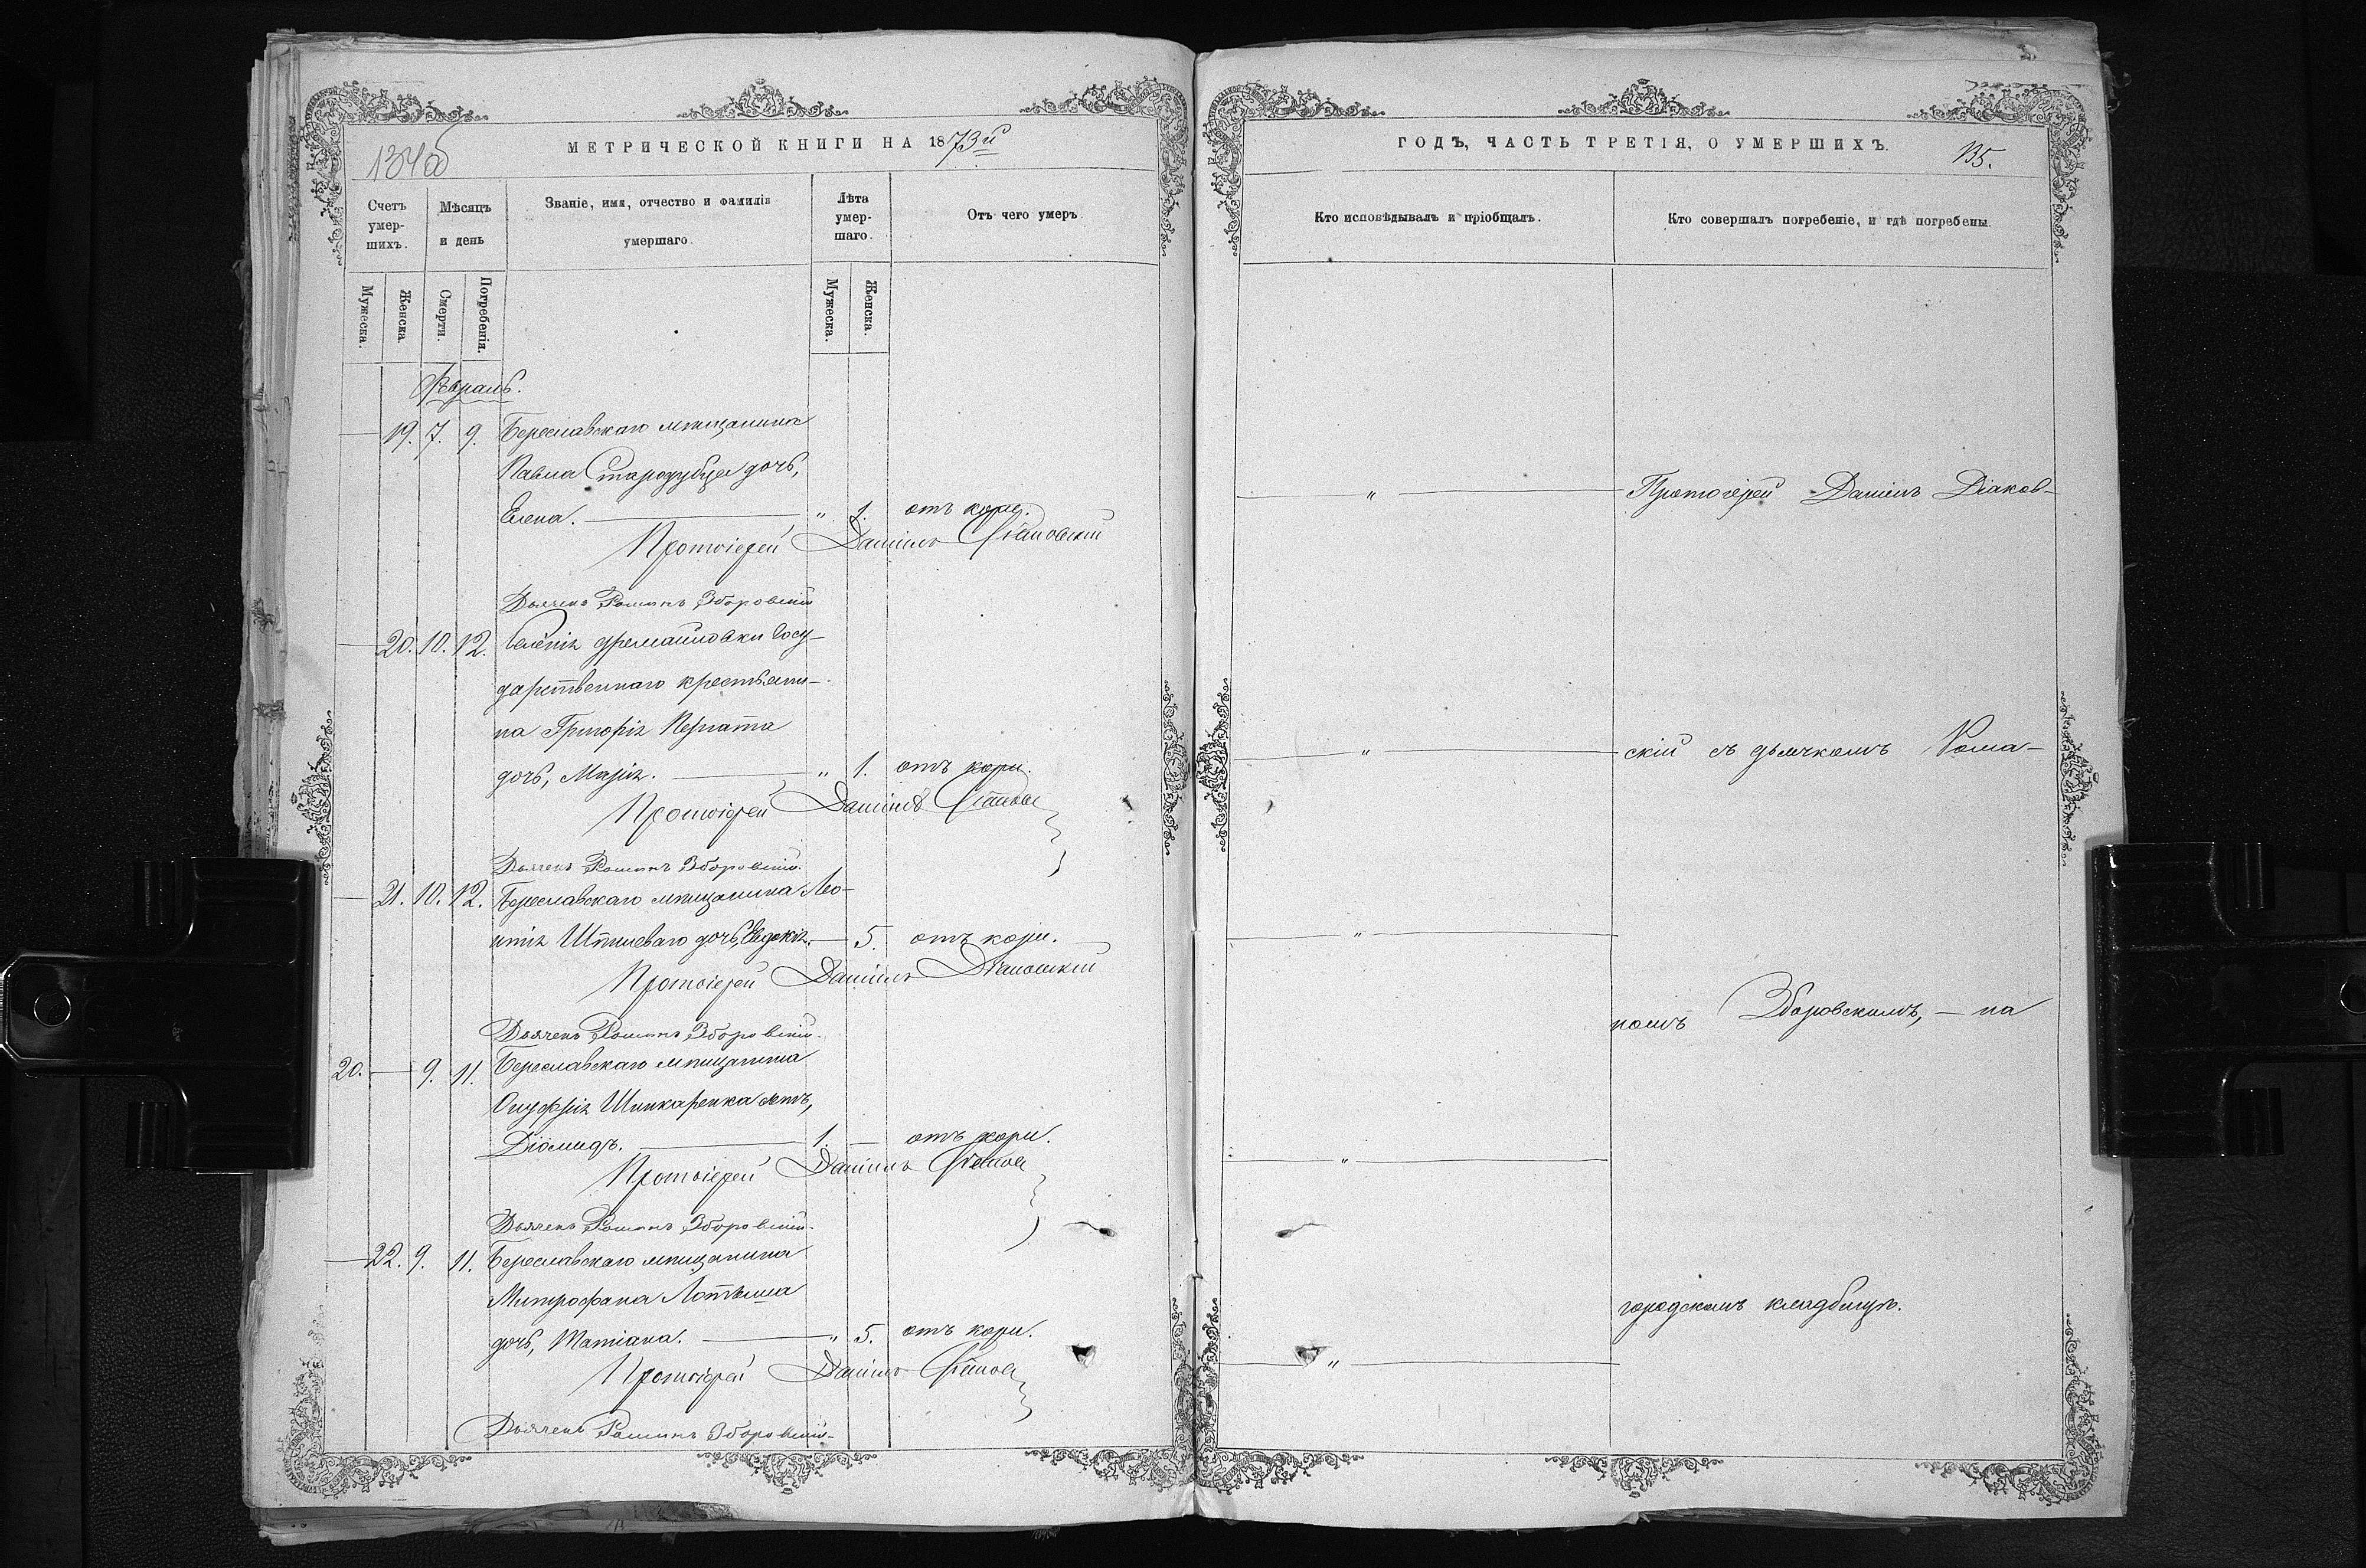 134об
МЕТРИЧЕСКОЙ КНИГИ НА 1873й
Счетъ умер-шихъ.
Мѣсяцъ и день
Званіе, имя, отчество и фамилія умершаго.
Лѣта умер-шаго.
Отъ чего умеръ
Мужеска.
Женска.
Смерти.
Погребенія.
Мужеска.
Женска.
Февраль.
19. 7. 9. Береславскаго мѣщанина
Павла Стародубца дочь,
Елена. — " 1. отъ кори.
Протоіерей Даніилъ Діаковскій
Дьячекъ Романъ Зборовскій
20. 10. 12. Селенія Дремайловки Госу-
дарственнаго крестьяни-
на Григорія
дочь, Марія. — " 1. отъ кори.
Протоіерей Даніилъ
Дьячекъ Романъ Зборовскій.
21. 10. 12. Береславскаго мѣщанина Лео-
нтія дочь, Евдокія. — 5. отъ кори.
Протоіерей Даніилъ Діаковскій
Дьячекъ Романъ Зборовскій.
20. — 9. 11. Береславскаго мѣщанина
Онуфрія Шинкаренка сынъ,
Діомидъ. — 1. — отъ кори.
Протоіерей Даніилъ
Дьячекъ Романъ Зборовскій.
— 22. 9. 11. Береславскаго мѣщанина
Митрофана Лотыша
дочь, Татіана. — " 5. отъ кори.
Протоіерей Даніилъ
Дьячекъ Романъ Зборовскій.
ГОДЪ, ЧАСТЬ ТРЕТІЯ, О УМЕРШИХЪ.
135.
Кто исповѣдывалъ и пріобщалъ.
Кто совершалъ погребеніе, и гдѣ погребены.
— " — Протоіерей Даніилъ Діаков-
— " — скій съ дьячкомъ Рома-
— " —
номъ Зборовскимъ, — на
— " —
городскомъ кладбищѣ.
— " —